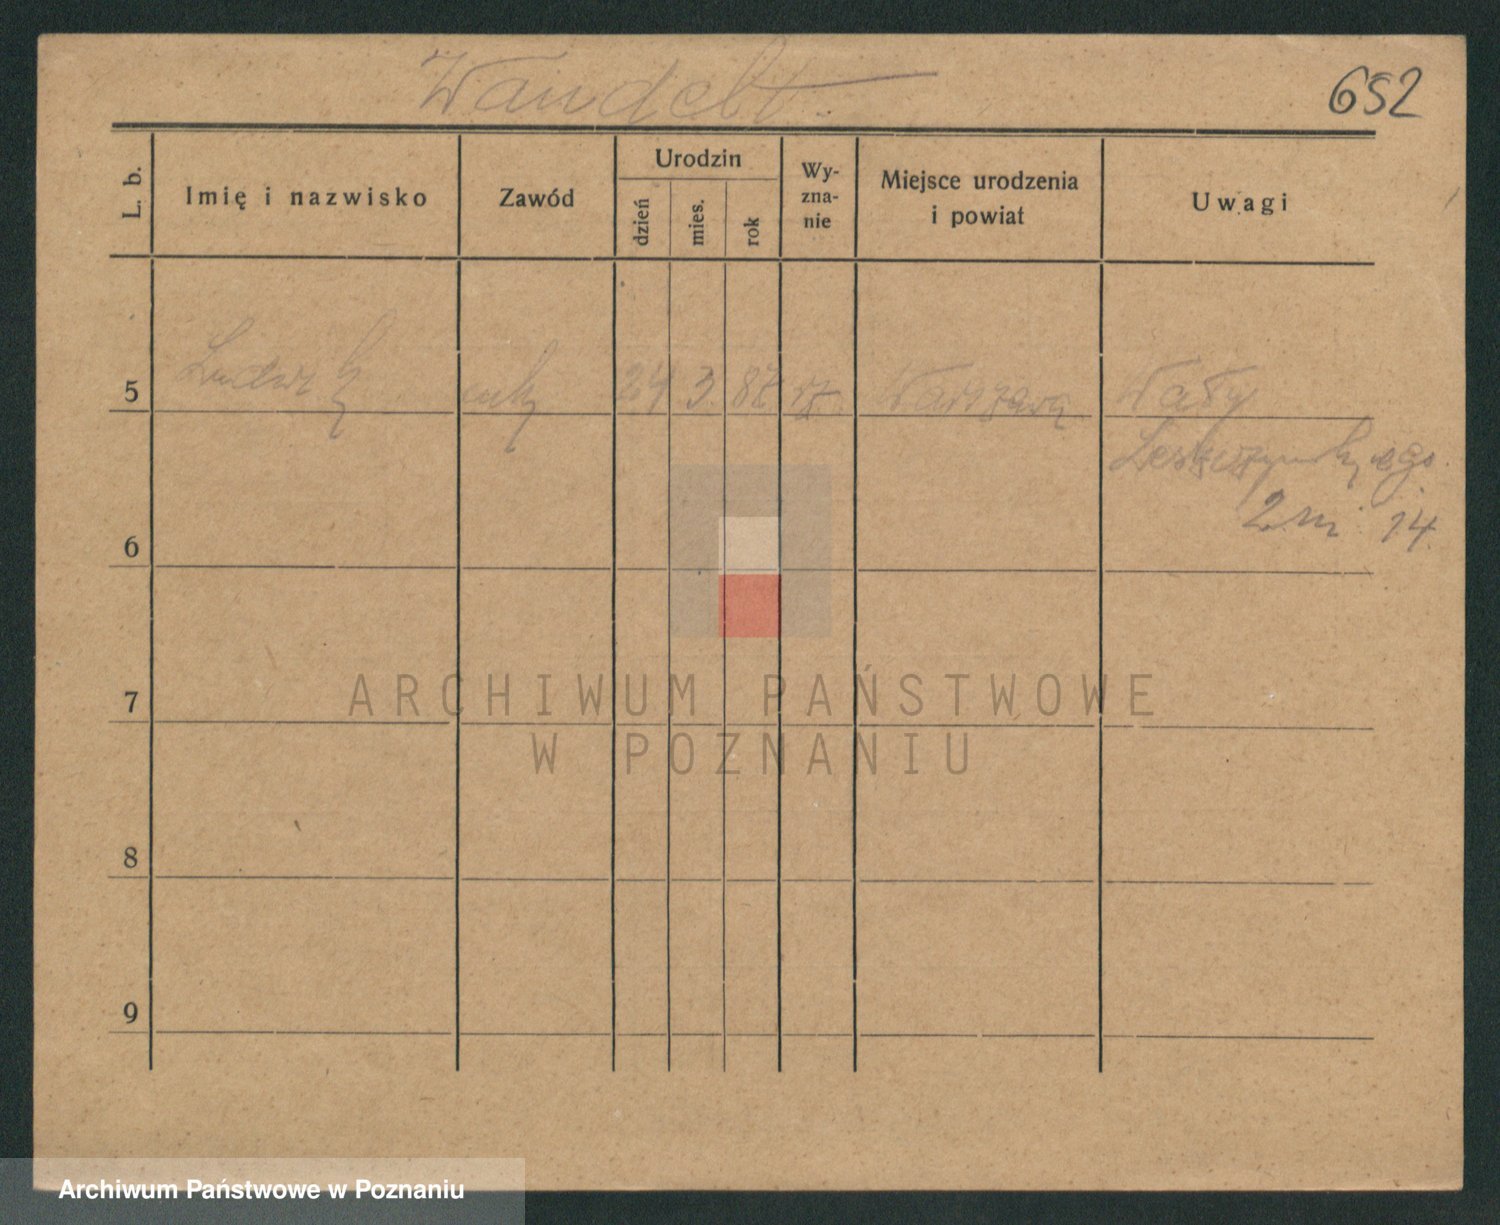 Wandelt.
652
L. b.
Imię i nazwisko
Zawód
Urodzin
dzień
mies.
rok
Wy-
zna-
nie
Miejsce urodzenia
i powiat
Uwagi
5 Ludwik 24 3 rz Warszawa Wały
Leszczyńskiego
2 m. 14
6
7
8
9
ARCHIWUM PAŃSTWOWE
W POZNANIU
Archiwum Państwowe w Poznaniu